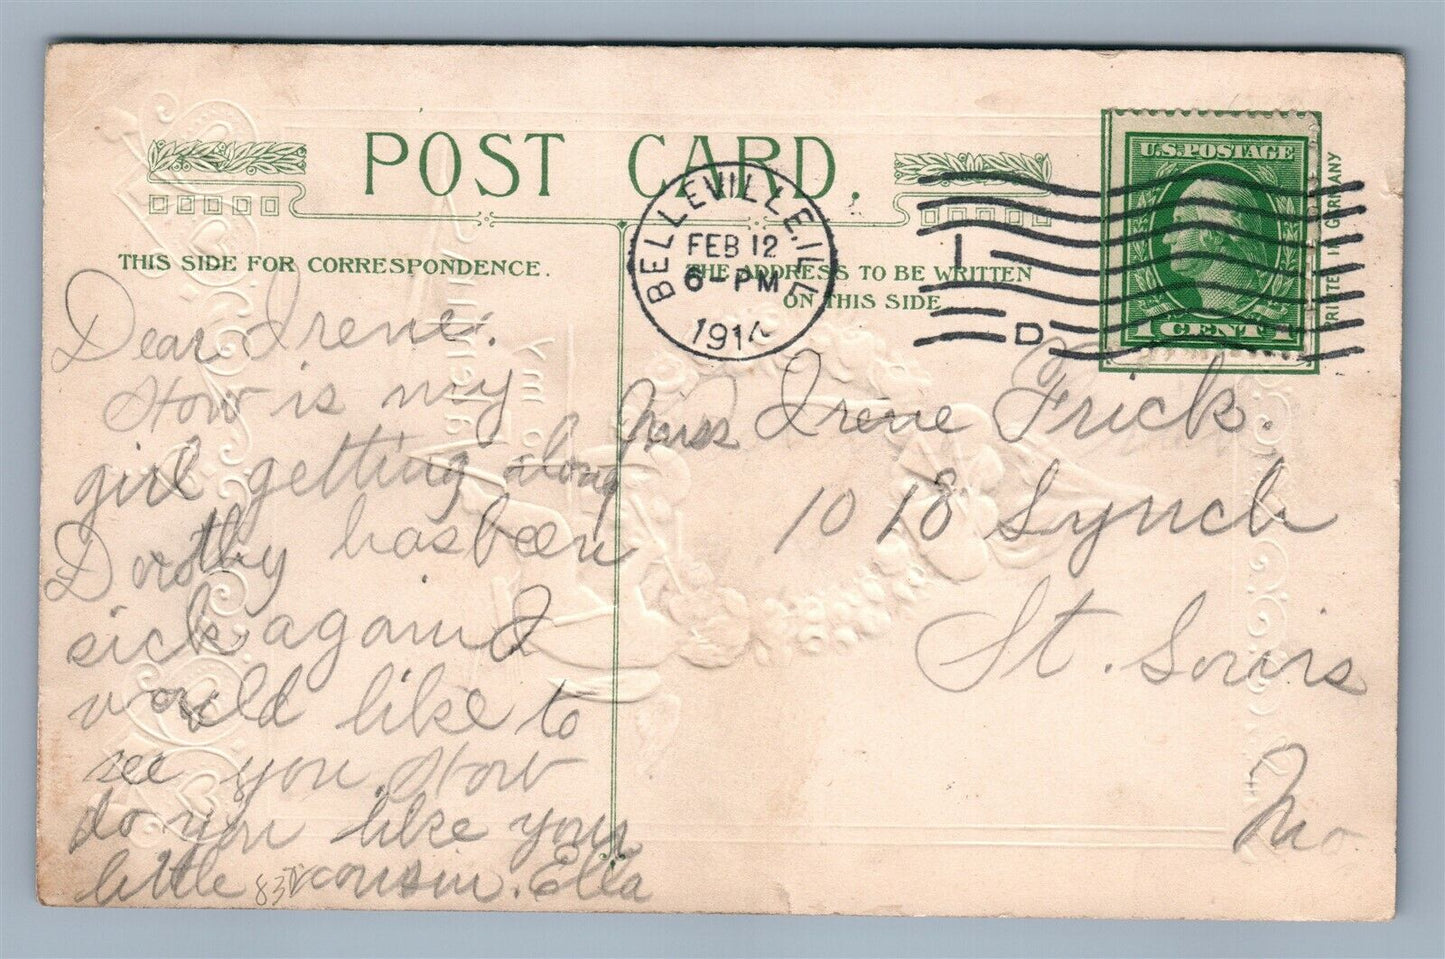 POST CARD.
THIS SIDE FOR CORRESPONDENCE.
THE ADDRESS TO BE WRITTEN
ON THIS SIDE
BELLEVILLE, ILL
FEB 12
6-PM
1914
1
D
U.S. POSTAGE
1 CENT 1
PRINTED IN GERMANY
Dear Irene:
How is my
girl getting along
Dorothy has been
sick again I
would like to
see you. How
do you like your
little cousin. Ella
Miss Irene Frick.
1018 Lynch
St. Louis
Mo.